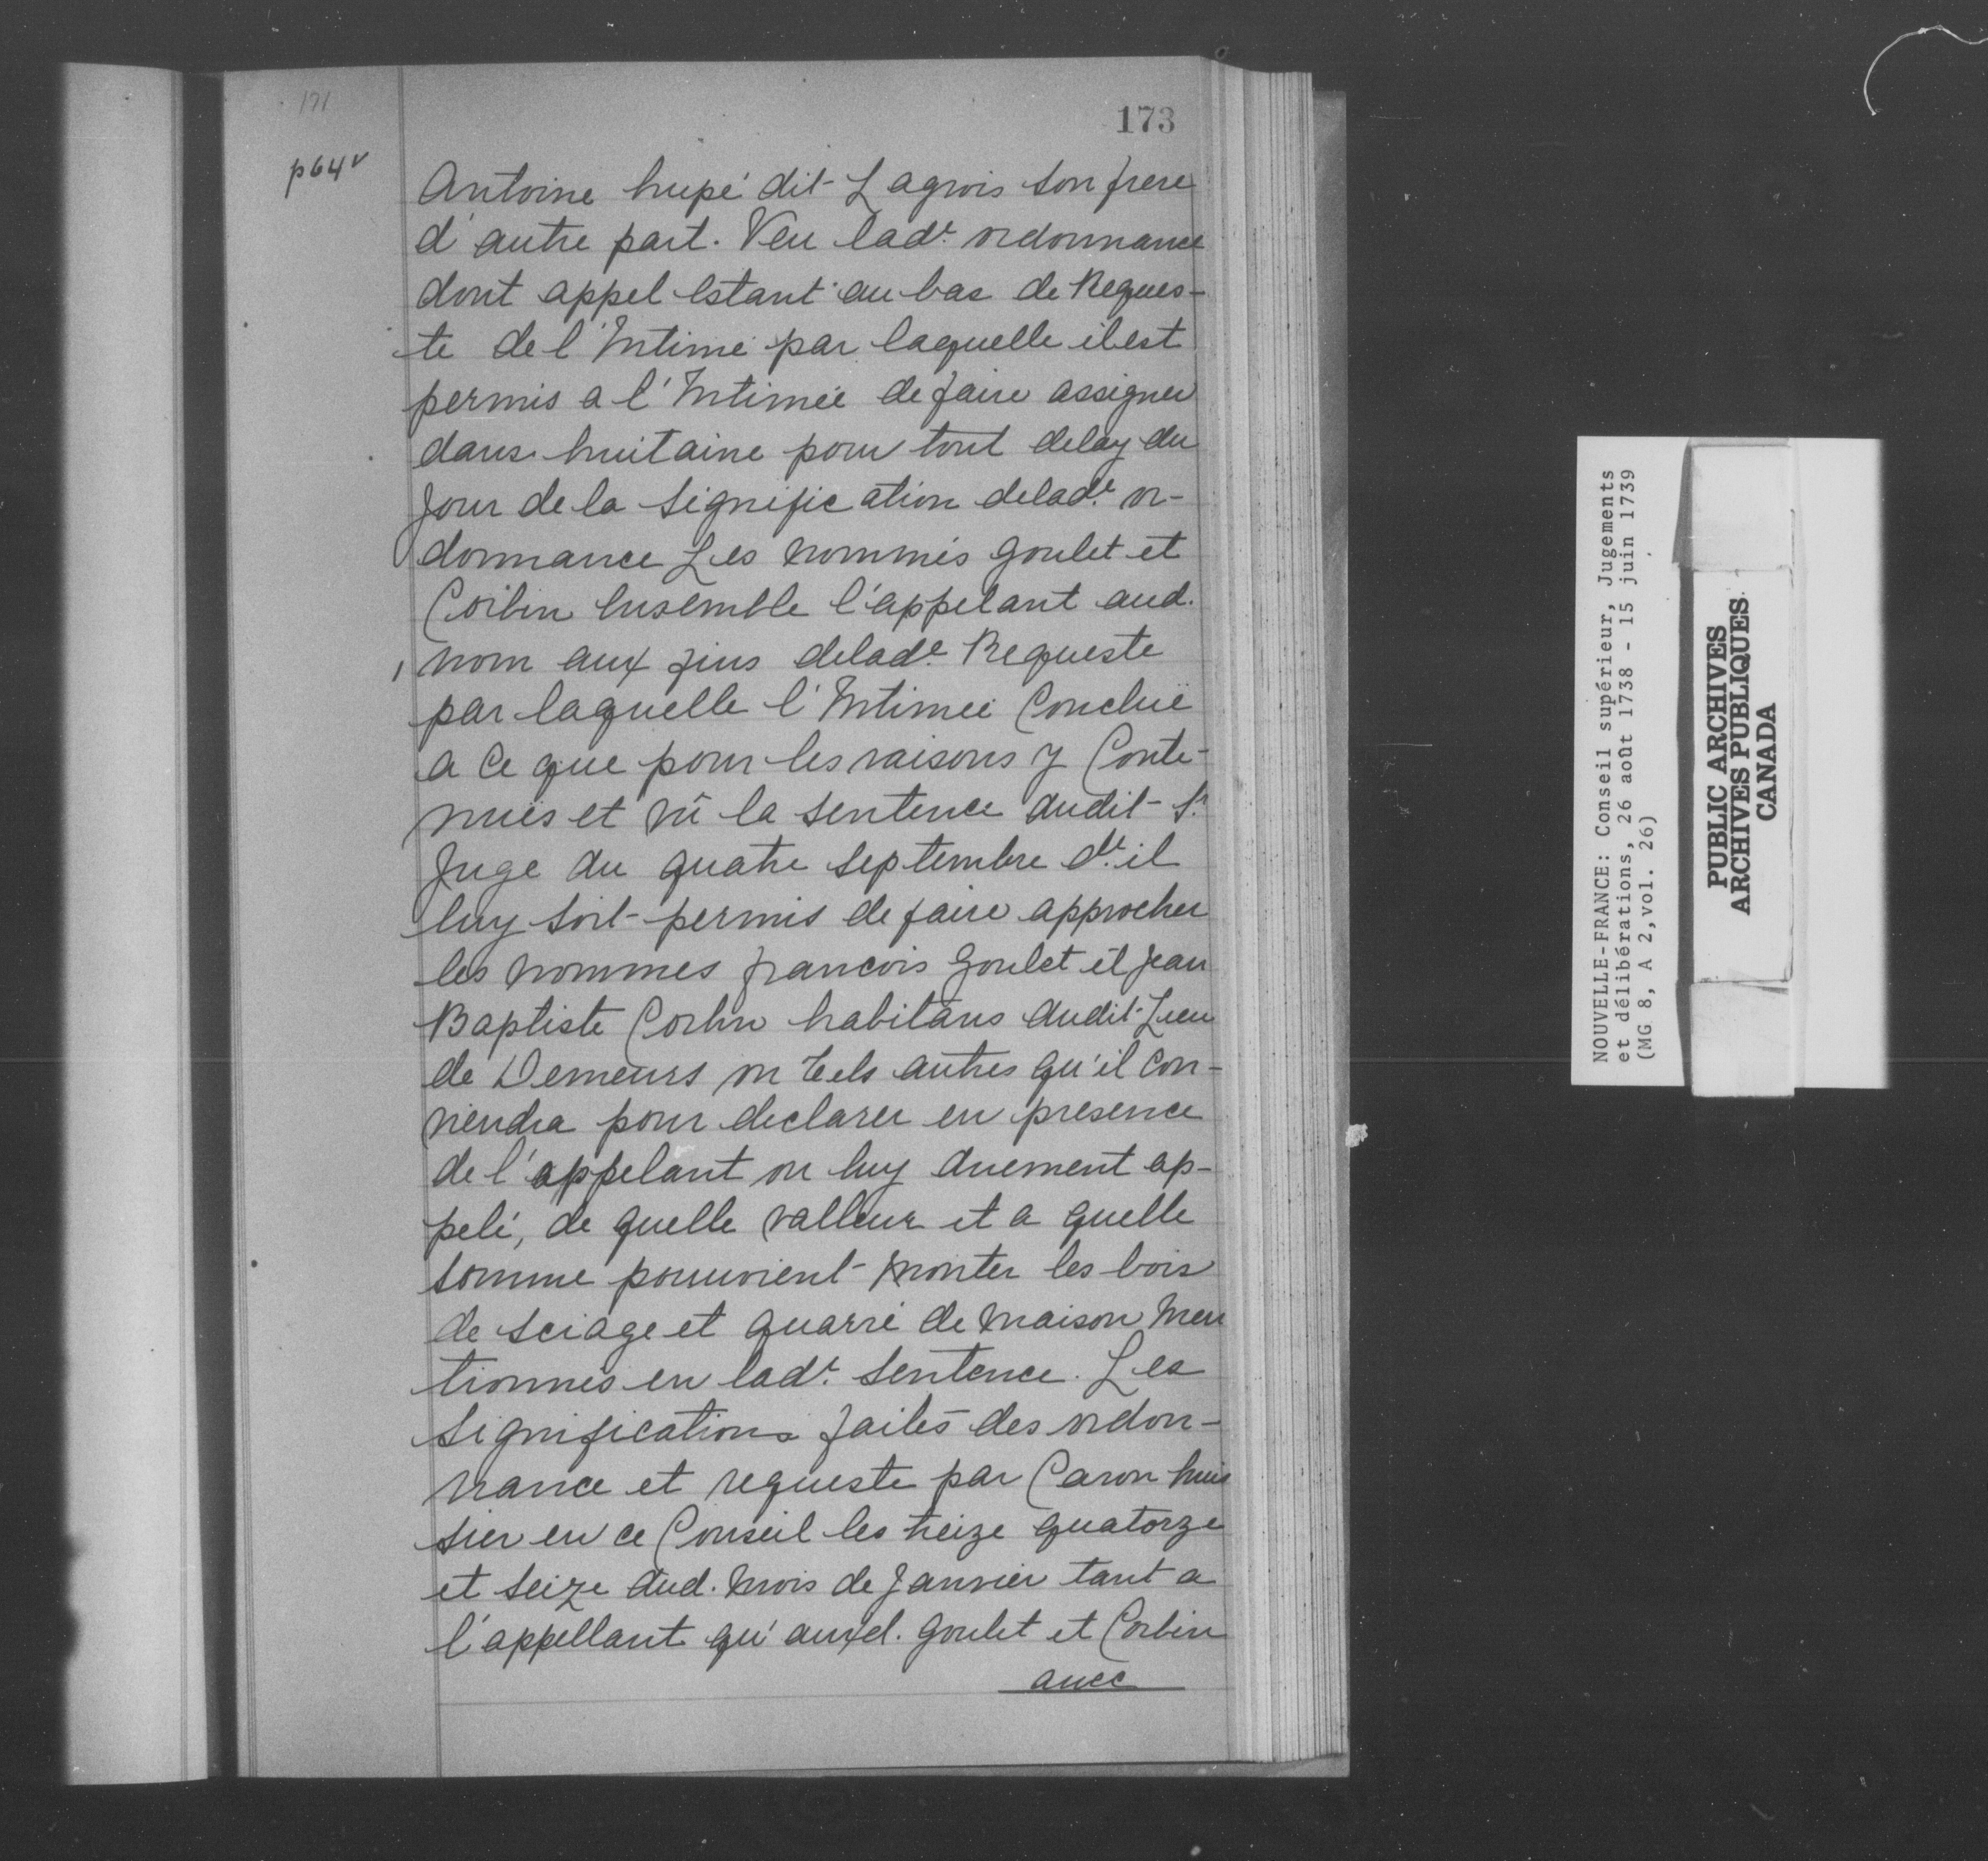 171
173
p64v
Antoine hupé dit Lagrois son frere
d'autre part. Veu lade. ordonnance
dont appel Estant au bas de Reques-
te de l'Intimé par laquelle il est
permis a l'Intimée de faire assigner
dans huitaine pour tout delay du
Jour de la signification delade. or-
donnance Les nommés goulet et
Corbin Ensemble l'appelant aud.
nom aux fins delade. Requeste
par laquelle l'Intimeé Conclüe
a Ce que pour les raisons y Conte-
nuës et vû la sentence dudit Sr.
Juge du quatre septembre dr. il
luy soit permis de faire approcher
les nommés francois Goulet et Jean
Baptiste Corbin habitans dudit Lieu
de Demeurs ou tels autres qu'il con-
viendra pour declarer en presence
de l'appelant ou luy duement ap-
pelé, de quelle valleur et a quelle
somme pouuoient monter les bois
de sciage et quarré de maison Men
tionnés en lade. sentence. Les
significations faites des ordon-
nance et requeste par Caron huis
sier en ce Conseil les treize quatorze
et seize dud. mois de Janvier tant a
l'appellant qu'auxd. goulet et Corbin
auec
NOUVELLE-FRANCE: Conseil supérieur, Jugements
et délibérations, 26 août 1738 - 15 juin 1739
(MG 8, A 2, vol. 26)
PUBLIC ARCHIVES
ARCHIVES PUBLIQUES
CANADA